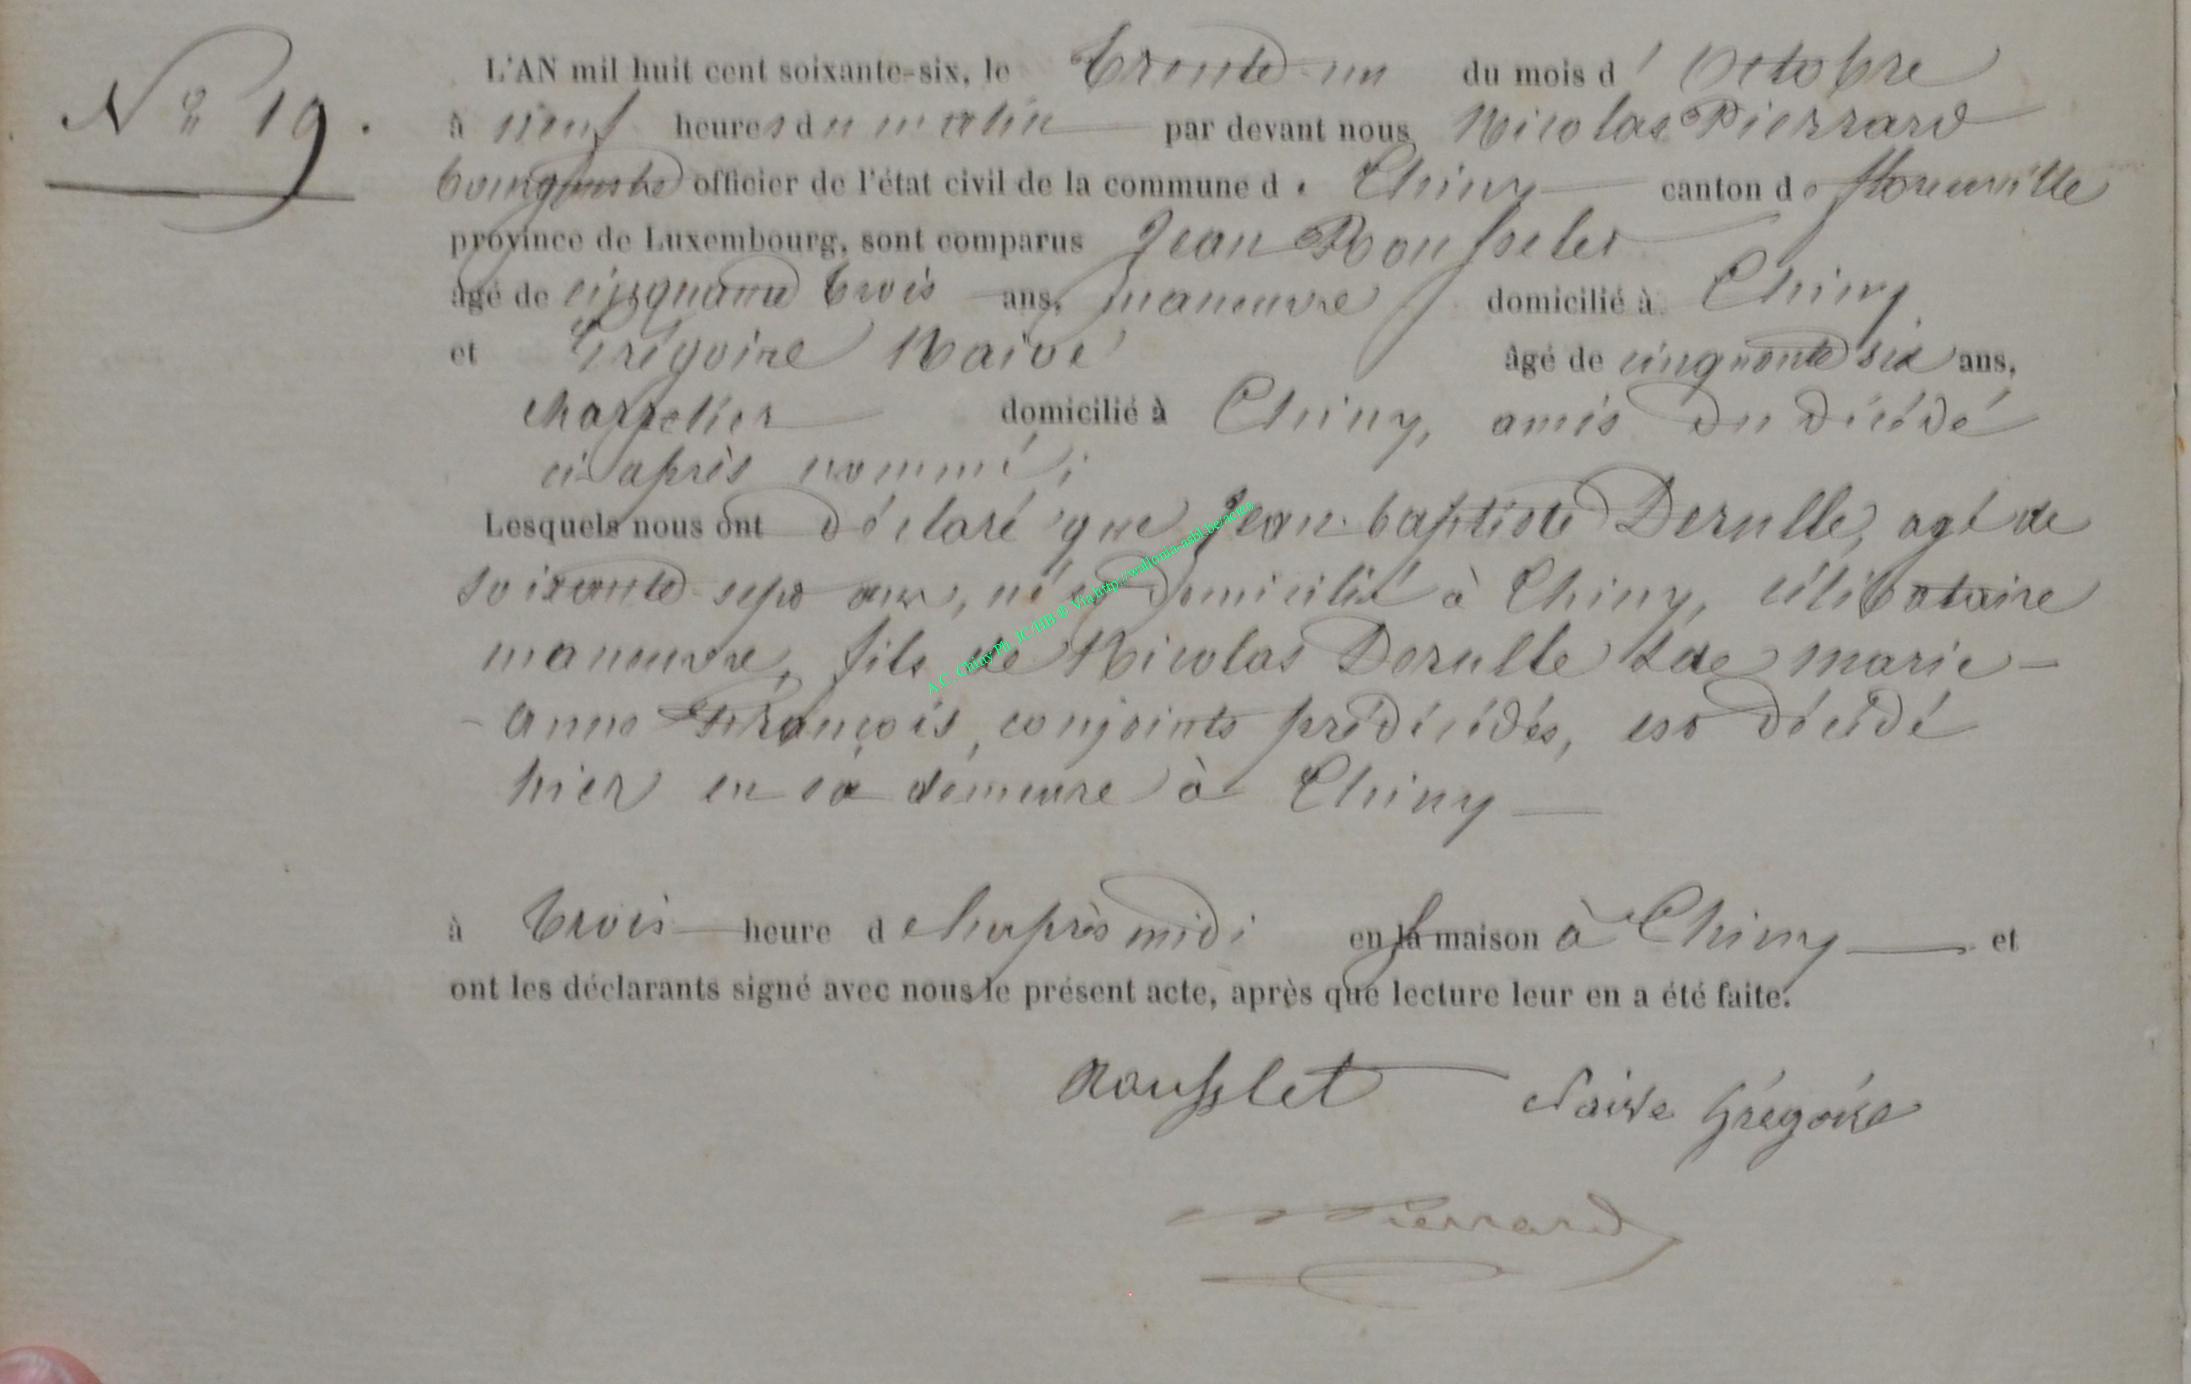 N° 19.
L'AN mil huit cent soixante-six, le trente-un du mois d'Octobre
à neuf heures du matin par devant nous Nicolas Pierrard
Bourgmestre officier de l'état civil de la commune de Chiny canton de florenville
province de Luxembourg, sont comparus Jean Rousselet
âgé de cinquante trois ans, manœuvre domicilié à Chiny
et Grégoire Naivé âgé de cinquante six ans,
domicilié à Chiny, amis du décédé
ci-après nommé;
Lesquels nous ont déclaré que Jean-baptiste Derulle, agé de
soixante-sept ans, né et domicilié à Chiny, célibataire
manœuvre, fils de Nicolas Derulle & de marie-
-anne François, conjoints prédécédés, est décédé
hier en sa demeure à Chiny
à trois heure de l'après midi en sa maison à Chiny et
ont les déclarants signé avec nous le présent acte, après que lecture leur en a été faite.
Rousslet Naive Grégoire
Pierrard
A.C. Chiny Ph. JC-HB © Via http://wallonia-asbl.be/actes